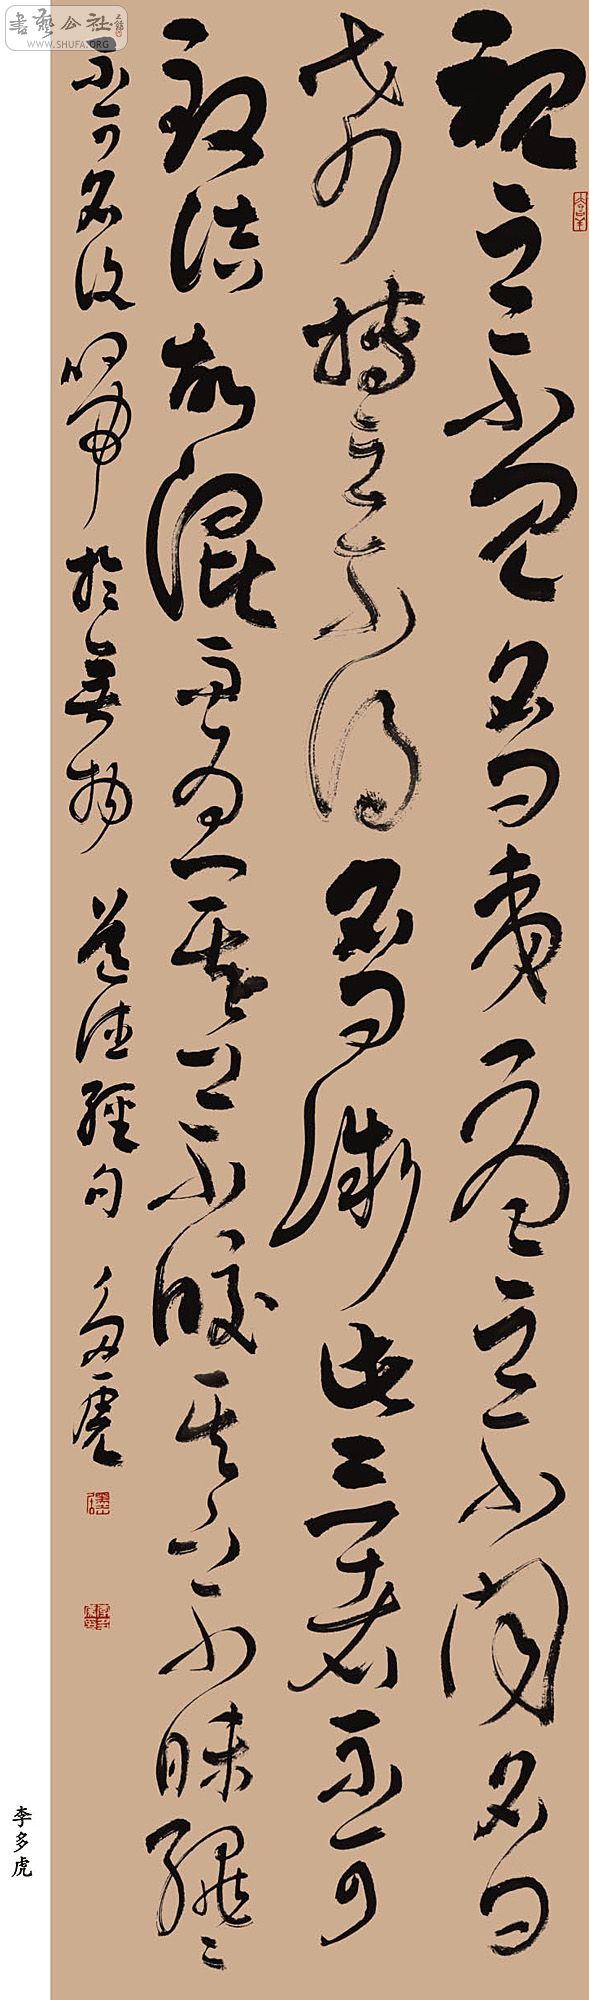 視之不見名曰夷聽之不聞名曰
希搏之不得名曰微此三者不可
致詰故混而為一其上不皦其下不昧繩〻
不可名復歸於無物 道德經句 多虎
李多虎
書藝公社
WWW.SHUFA.ORG